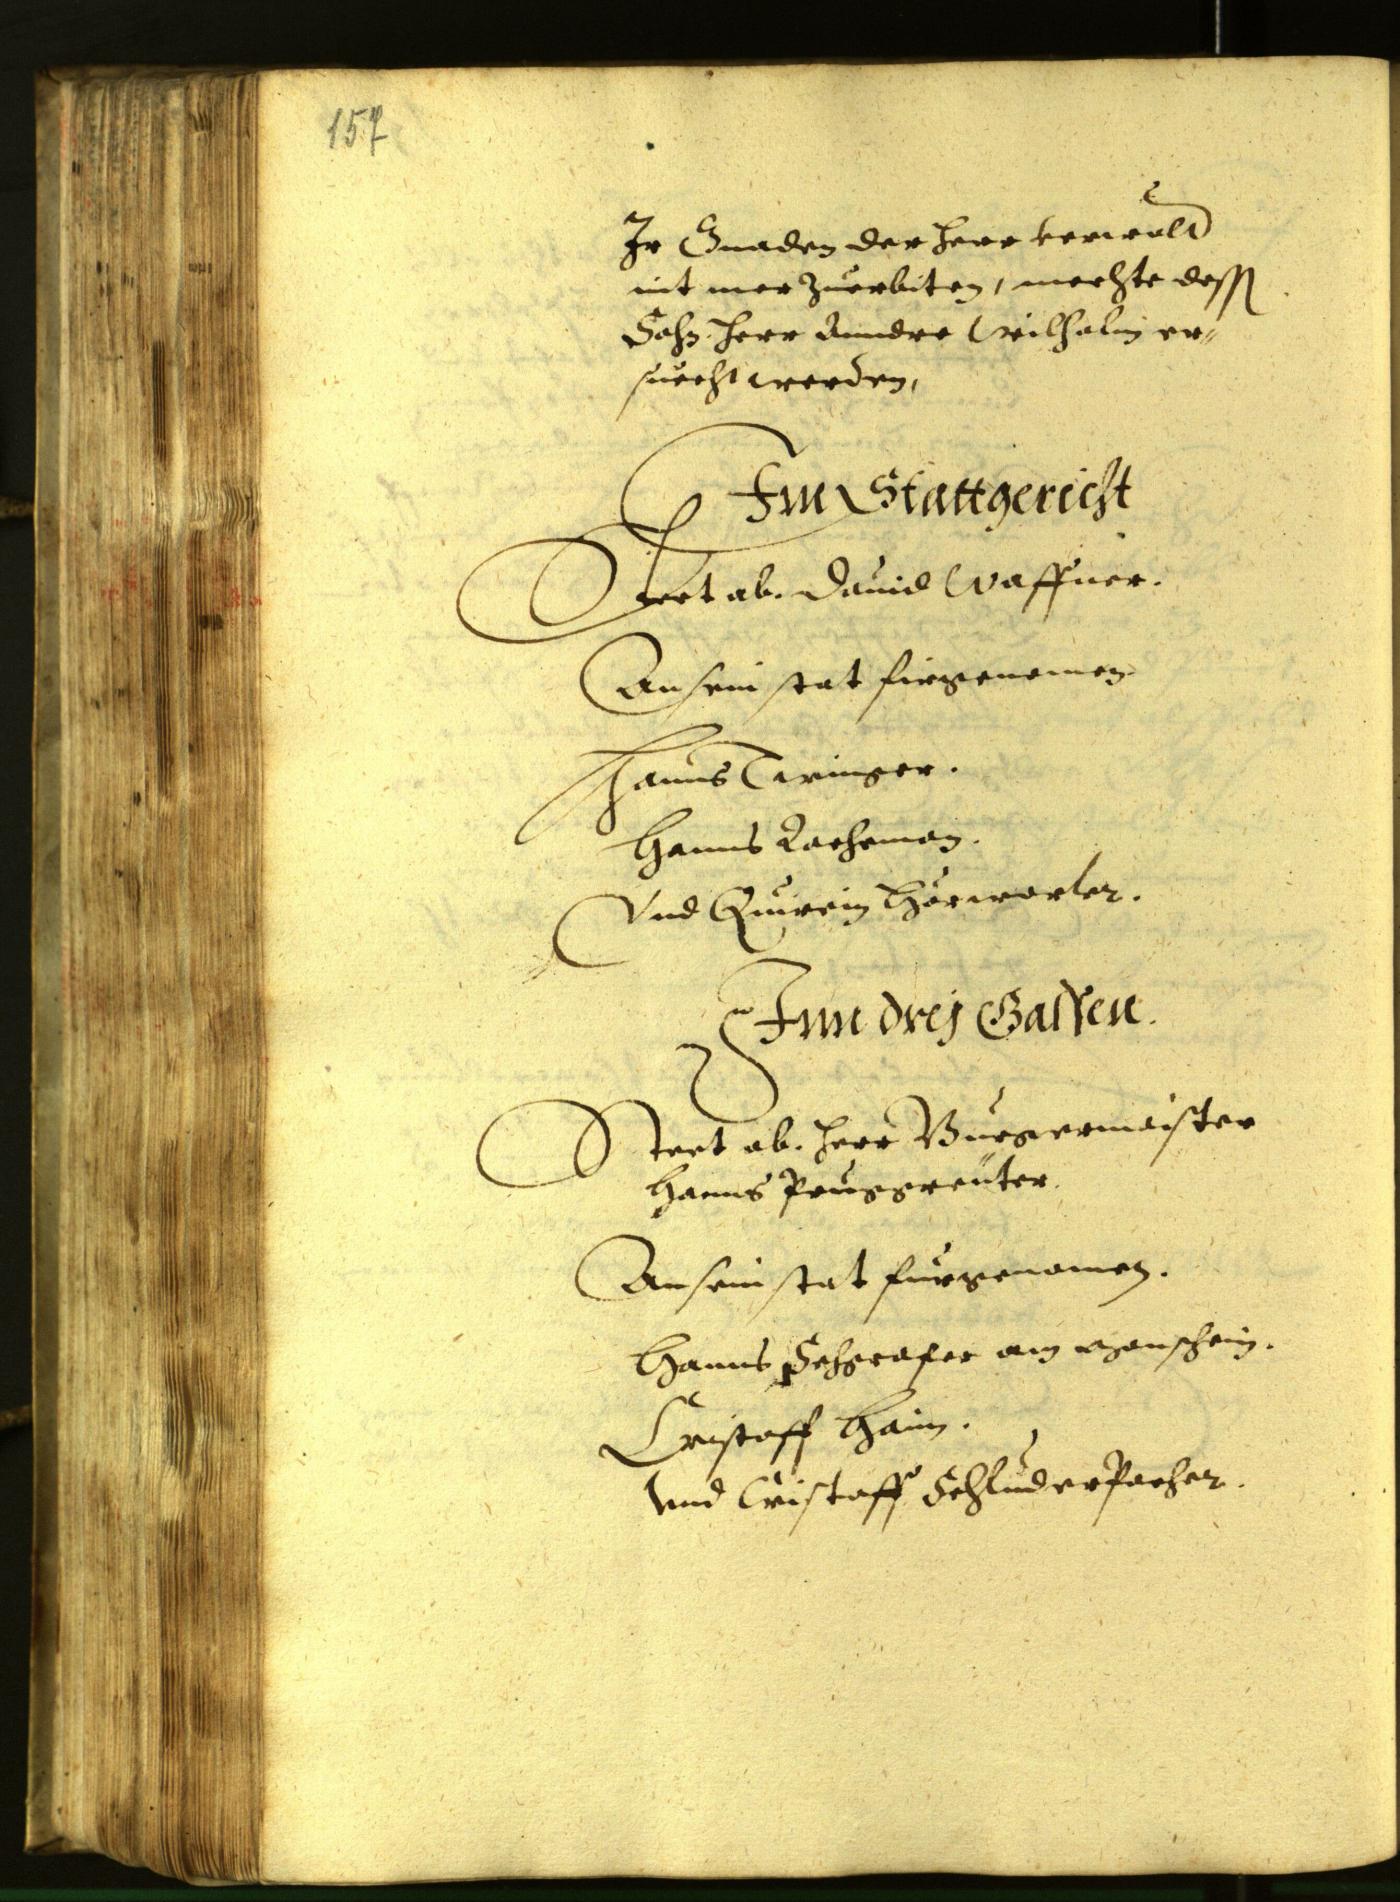 157
Ir Gnaden der Herr verwalt
nit mer zuerbiten, mechte dess
Sohn Herr Anndre Wilhalm er=
suecht werden,
Im Stattgericht
Teet ab. Dauid Waffner.
An sein stat firgenomen
Hanns Tiringer.
Hanns Lachman.
Vnd Quirein Hörwarter.
Inn drej Gassen.
Steet ab. Herr Burgermaister
Hanns Pruggreüter.
An sein stat fürgenomen.
Hanns Schgrafer am Monschein.
Cristoff Haim.
Vnd Cristoff Schluderpacher.